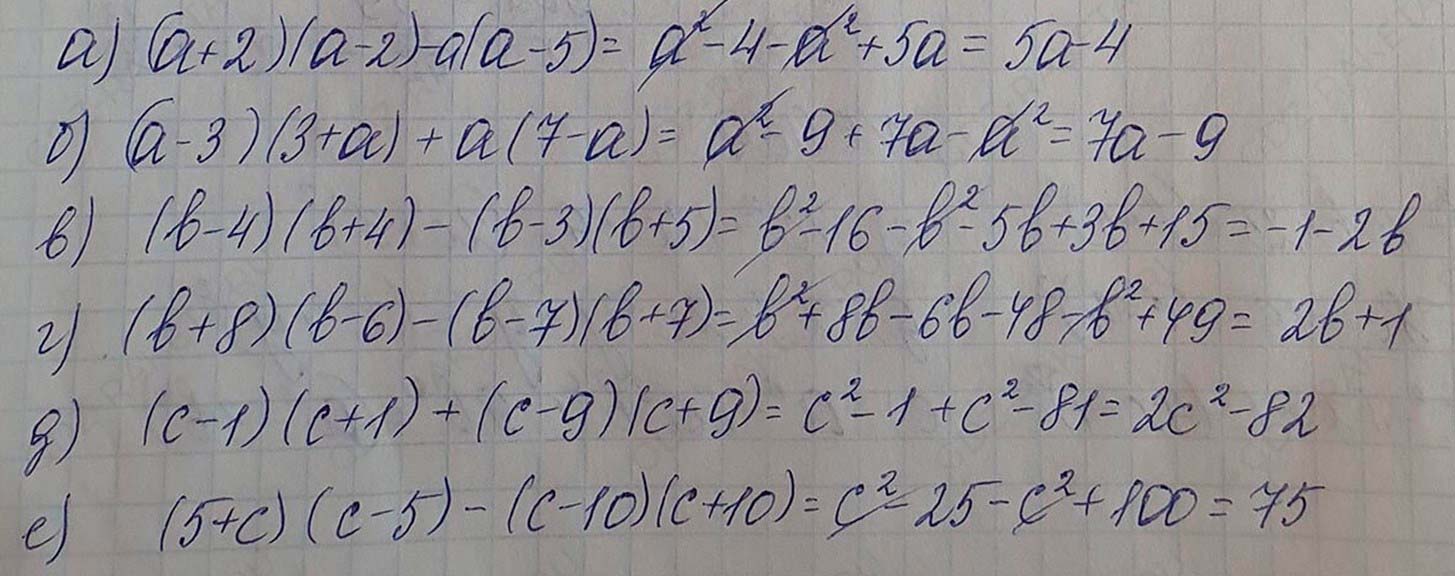 а) (a+2)(a-2)-a(a-5)= a²-4-a²+5a = 5a-4
б) (a-3)(3+a)+a(7-a)= a²-9+7a-a²=7a-9
в) (b-4)(b+4)-(b-3)(b+5)= b²-16-b²-5b+3b+15=-1-2b
г) (b+8)(b-6)-(b-7)(b+7)= b²+8b-6b-48-b²+49= 2b+1
д) (c-1)(c+1)+(c-9)(c+9)= c²-1+c²-81=2c²-82
е) (5+c)(c-5)-(c-10)(c+10)= c²-25-c²+100=75